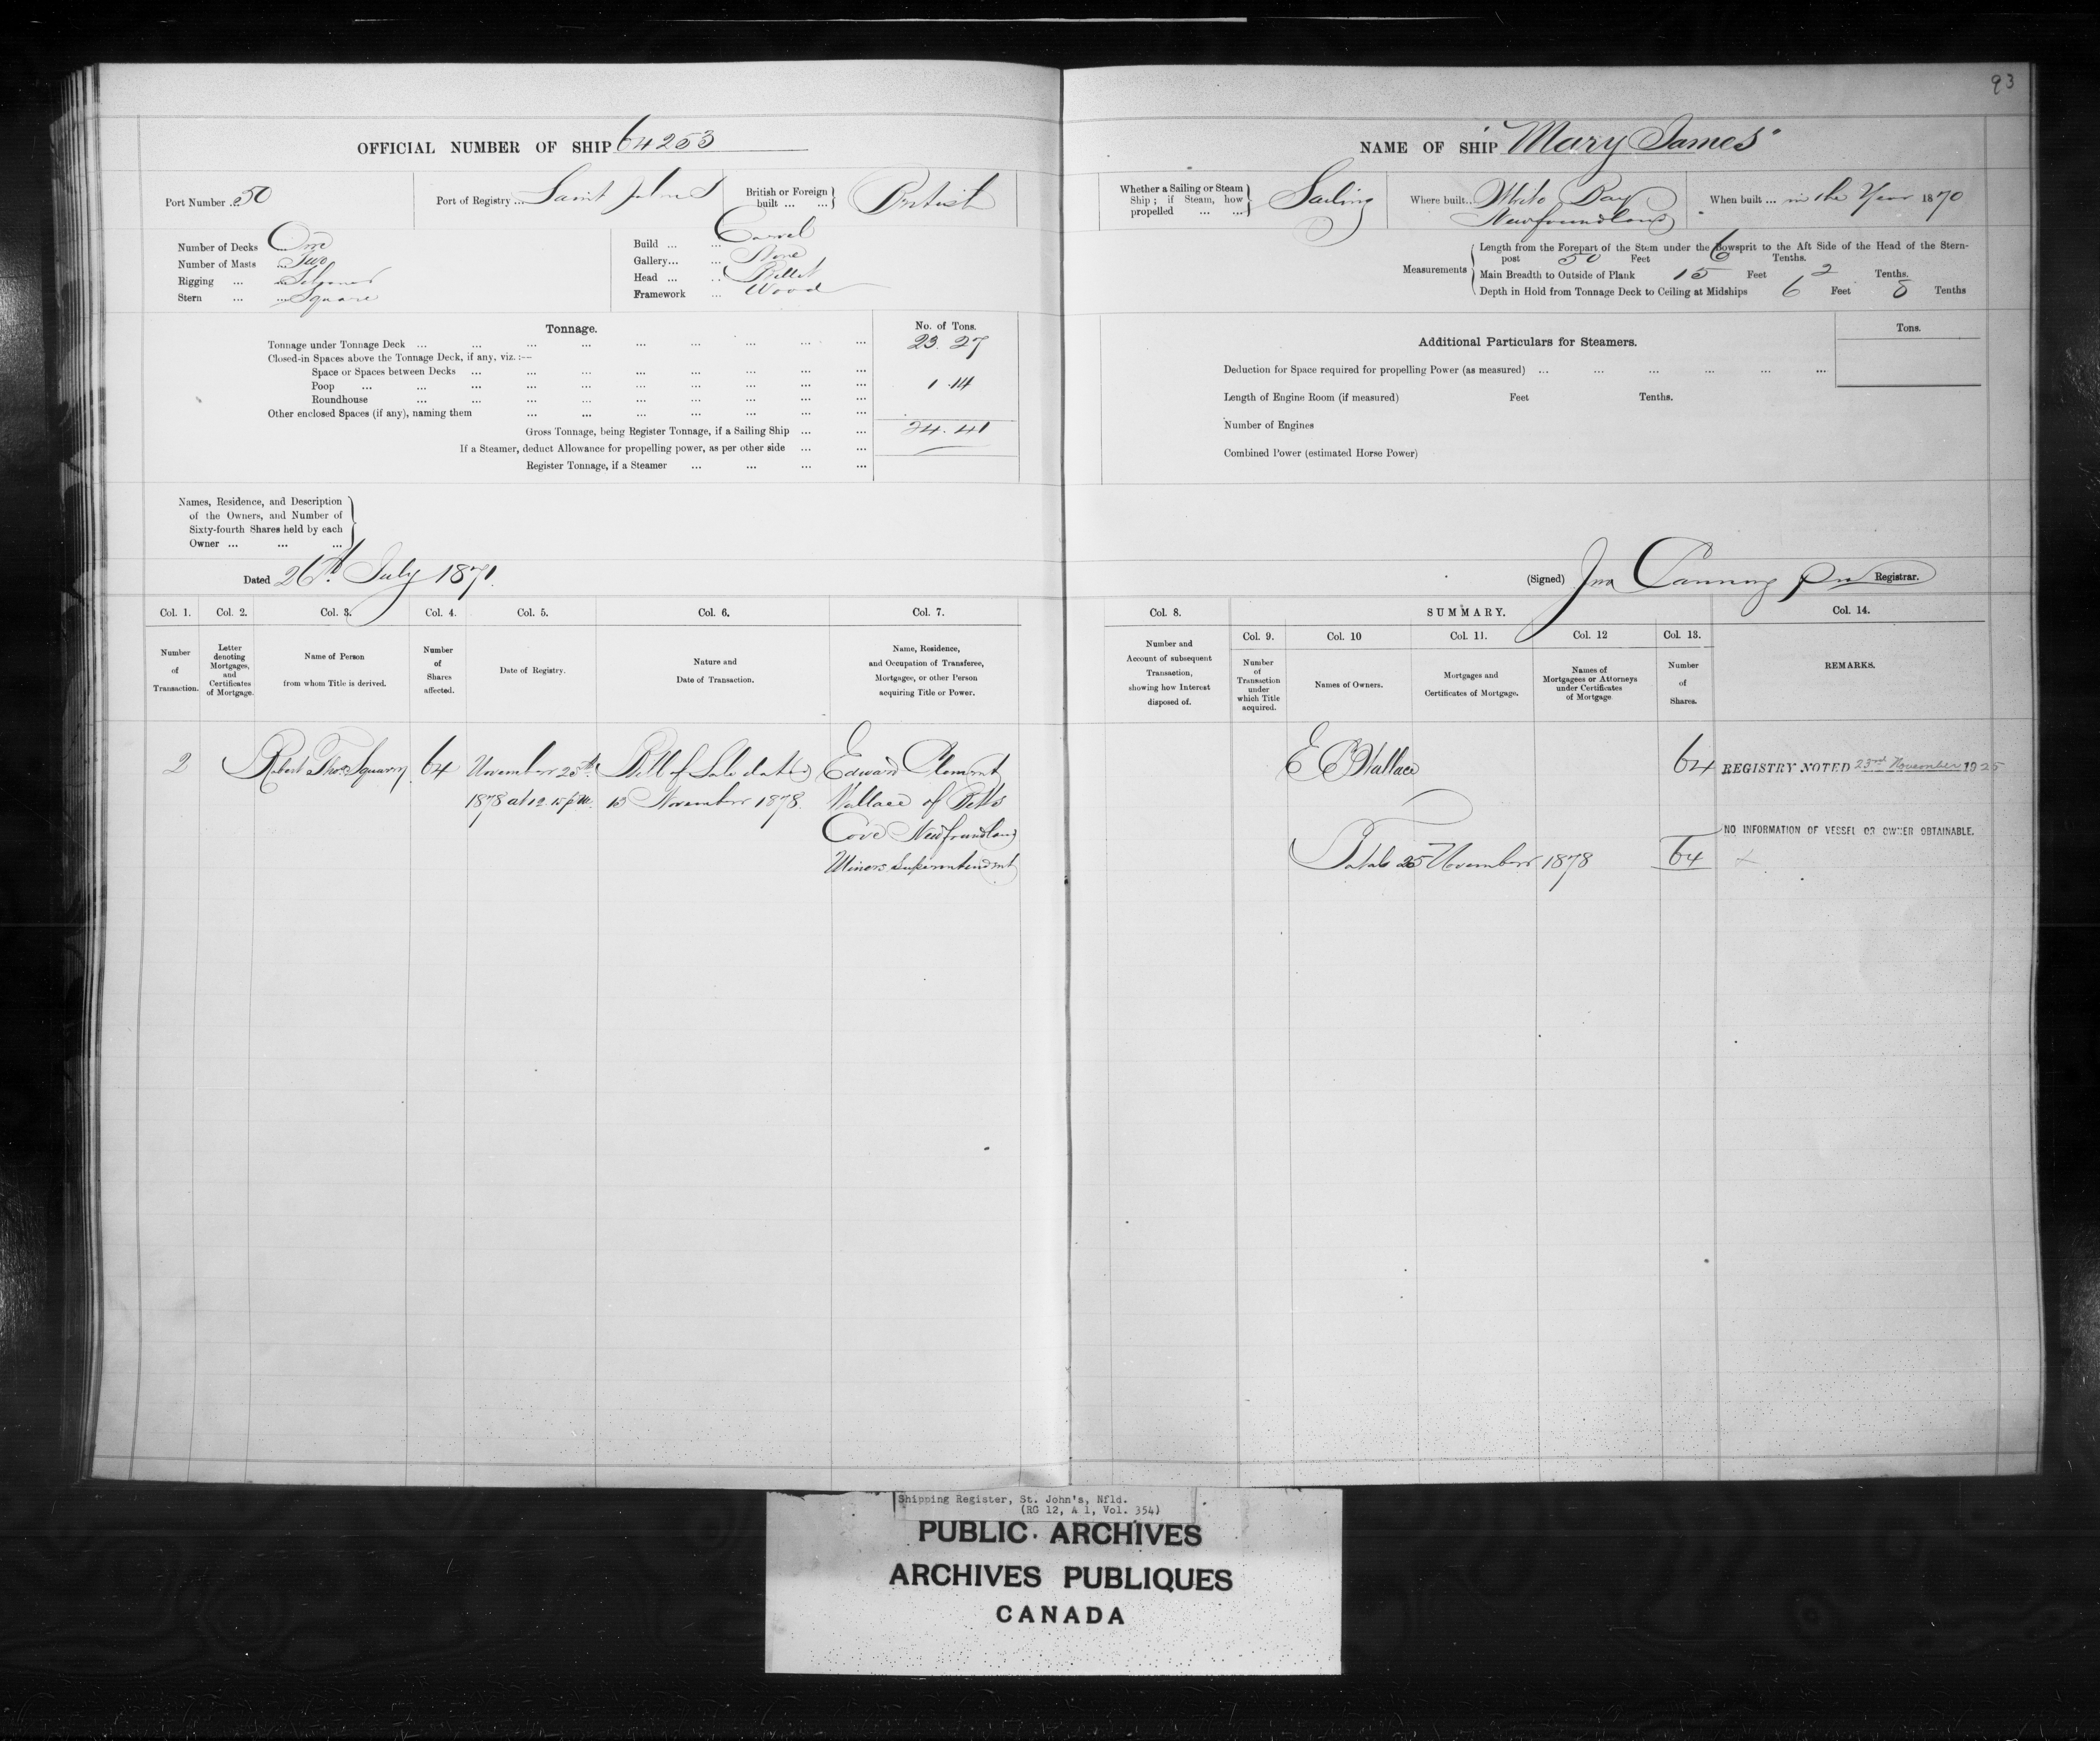 93
OFFICIAL NUMBER OF SHIP 64253
NAME OF SHIP "Mary James"
Port Number .. 50
Port of Registry ... Saint Johns
British or Foreign built ... ... British
Whether a Sailing or Steam Ship ; if Steam, how propelled ... ... Sailing
Where built.. White Bay Newfoundland
When built ... in the Year 1870
Number of Decks ... One
Number of Masts ... Two
Rigging ... ... Schooner
Stern ... ... Square
Build ... ... Carvel
Gallery... ... None
Head ... ... Billet
Framework ... Wood
Measurements
Length from the Forepart of the Stem under the Bowsprit to the Aft Side of the Head of the Stern-
post 50 Feet 6 Tenths.
Main Breadth to Outside of Plank 15 Feet 2 Tenths.
Depth in Hold from Tonnage Deck to Ceiling at Midships 6 Feet 8 Tenths
Tonnage.
No. of Tons.
Tonnage under Tonnage Deck ... ... ... ... ... ... ... ... ... 23.27
Closed-in Spaces above the Tonnage Deck, if any, viz. :—
Space or Spaces between Decks ... ... ... ... ... ... ... ...
Poop ... ... ... ... ... ... ... ... ... 1.14
Roundhouse ... ... ... ... ... ... ... ...
Other enclosed Spaces (if any), naming them ... ... ... ... ... ... ...
Gross Tonnage, being Register Tonnage, if a Sailing Ship ... ... 24.41
If a Steamer, deduct Allowance for propelling power, as per other side ... ...
Register Tonnage, if a Steamer ... ... ... ...
Additional Particulars for Steamers.
Tons.
Deduction for Space required for propelling Power (as measured) ... ... ... ... ... ...
Length of Engine Room (if measured) Feet Tenths.
Number of Engines
Combined Power (estimated Horse Power)
Names, Residence, and Description
of the Owners, and Number of
Sixty-fourth Shares held by each
Owner ... ... ...
Dated 26th July 1871.
(Signed) Jno Canning Registrar.
Col. 1. Col. 2. Col. 3. Col. 4. Col. 5. Col. 6. Col. 7.
Number of Transaction.
Letter denoting Mortgages, and Certificates of Mortgage.
Name of Person from whom Title is derived.
Number of Shares affected.
Date of Registry.
Nature and Date of Transaction.
Name, Residence, and Occupation of Transferee, Mortgagee, or other Person acquiring Title or Power.
Col. 8. SUMMARY. Col. 14.
Col. 9. Col. 10 Col. 11. Col. 12 Col. 13.
Number and Account of subsequent Transaction, showing how Interest disposed of.
Number of Transaction under which Title acquired.
Names of Owners.
Mortgages and Certificates of Mortgage.
Names of Mortgagees or Attorneys under Certificates of Mortgage
Number of Shares.
REMARKS.
2 Robert Thos. 64 November 25th Bill of Sale dated Edward Clement
1878 at 12.15 p.m. 13 November 1878. Wallace of Betts
Cove Newfoundland
Mines Superintendent
E C Wallace 64 REGISTRY NOTED 23rd November 1925
NO INFORMATION OF VESSEL OR OWNER OBTAINABLE.
Total 25 November 1878 64
Shipping Register, St. John's, Nfld.
(RG 12, A 1, Vol. 354)
PUBLIC ARCHIVES
ARCHIVES PUBLIQUES
CANADA